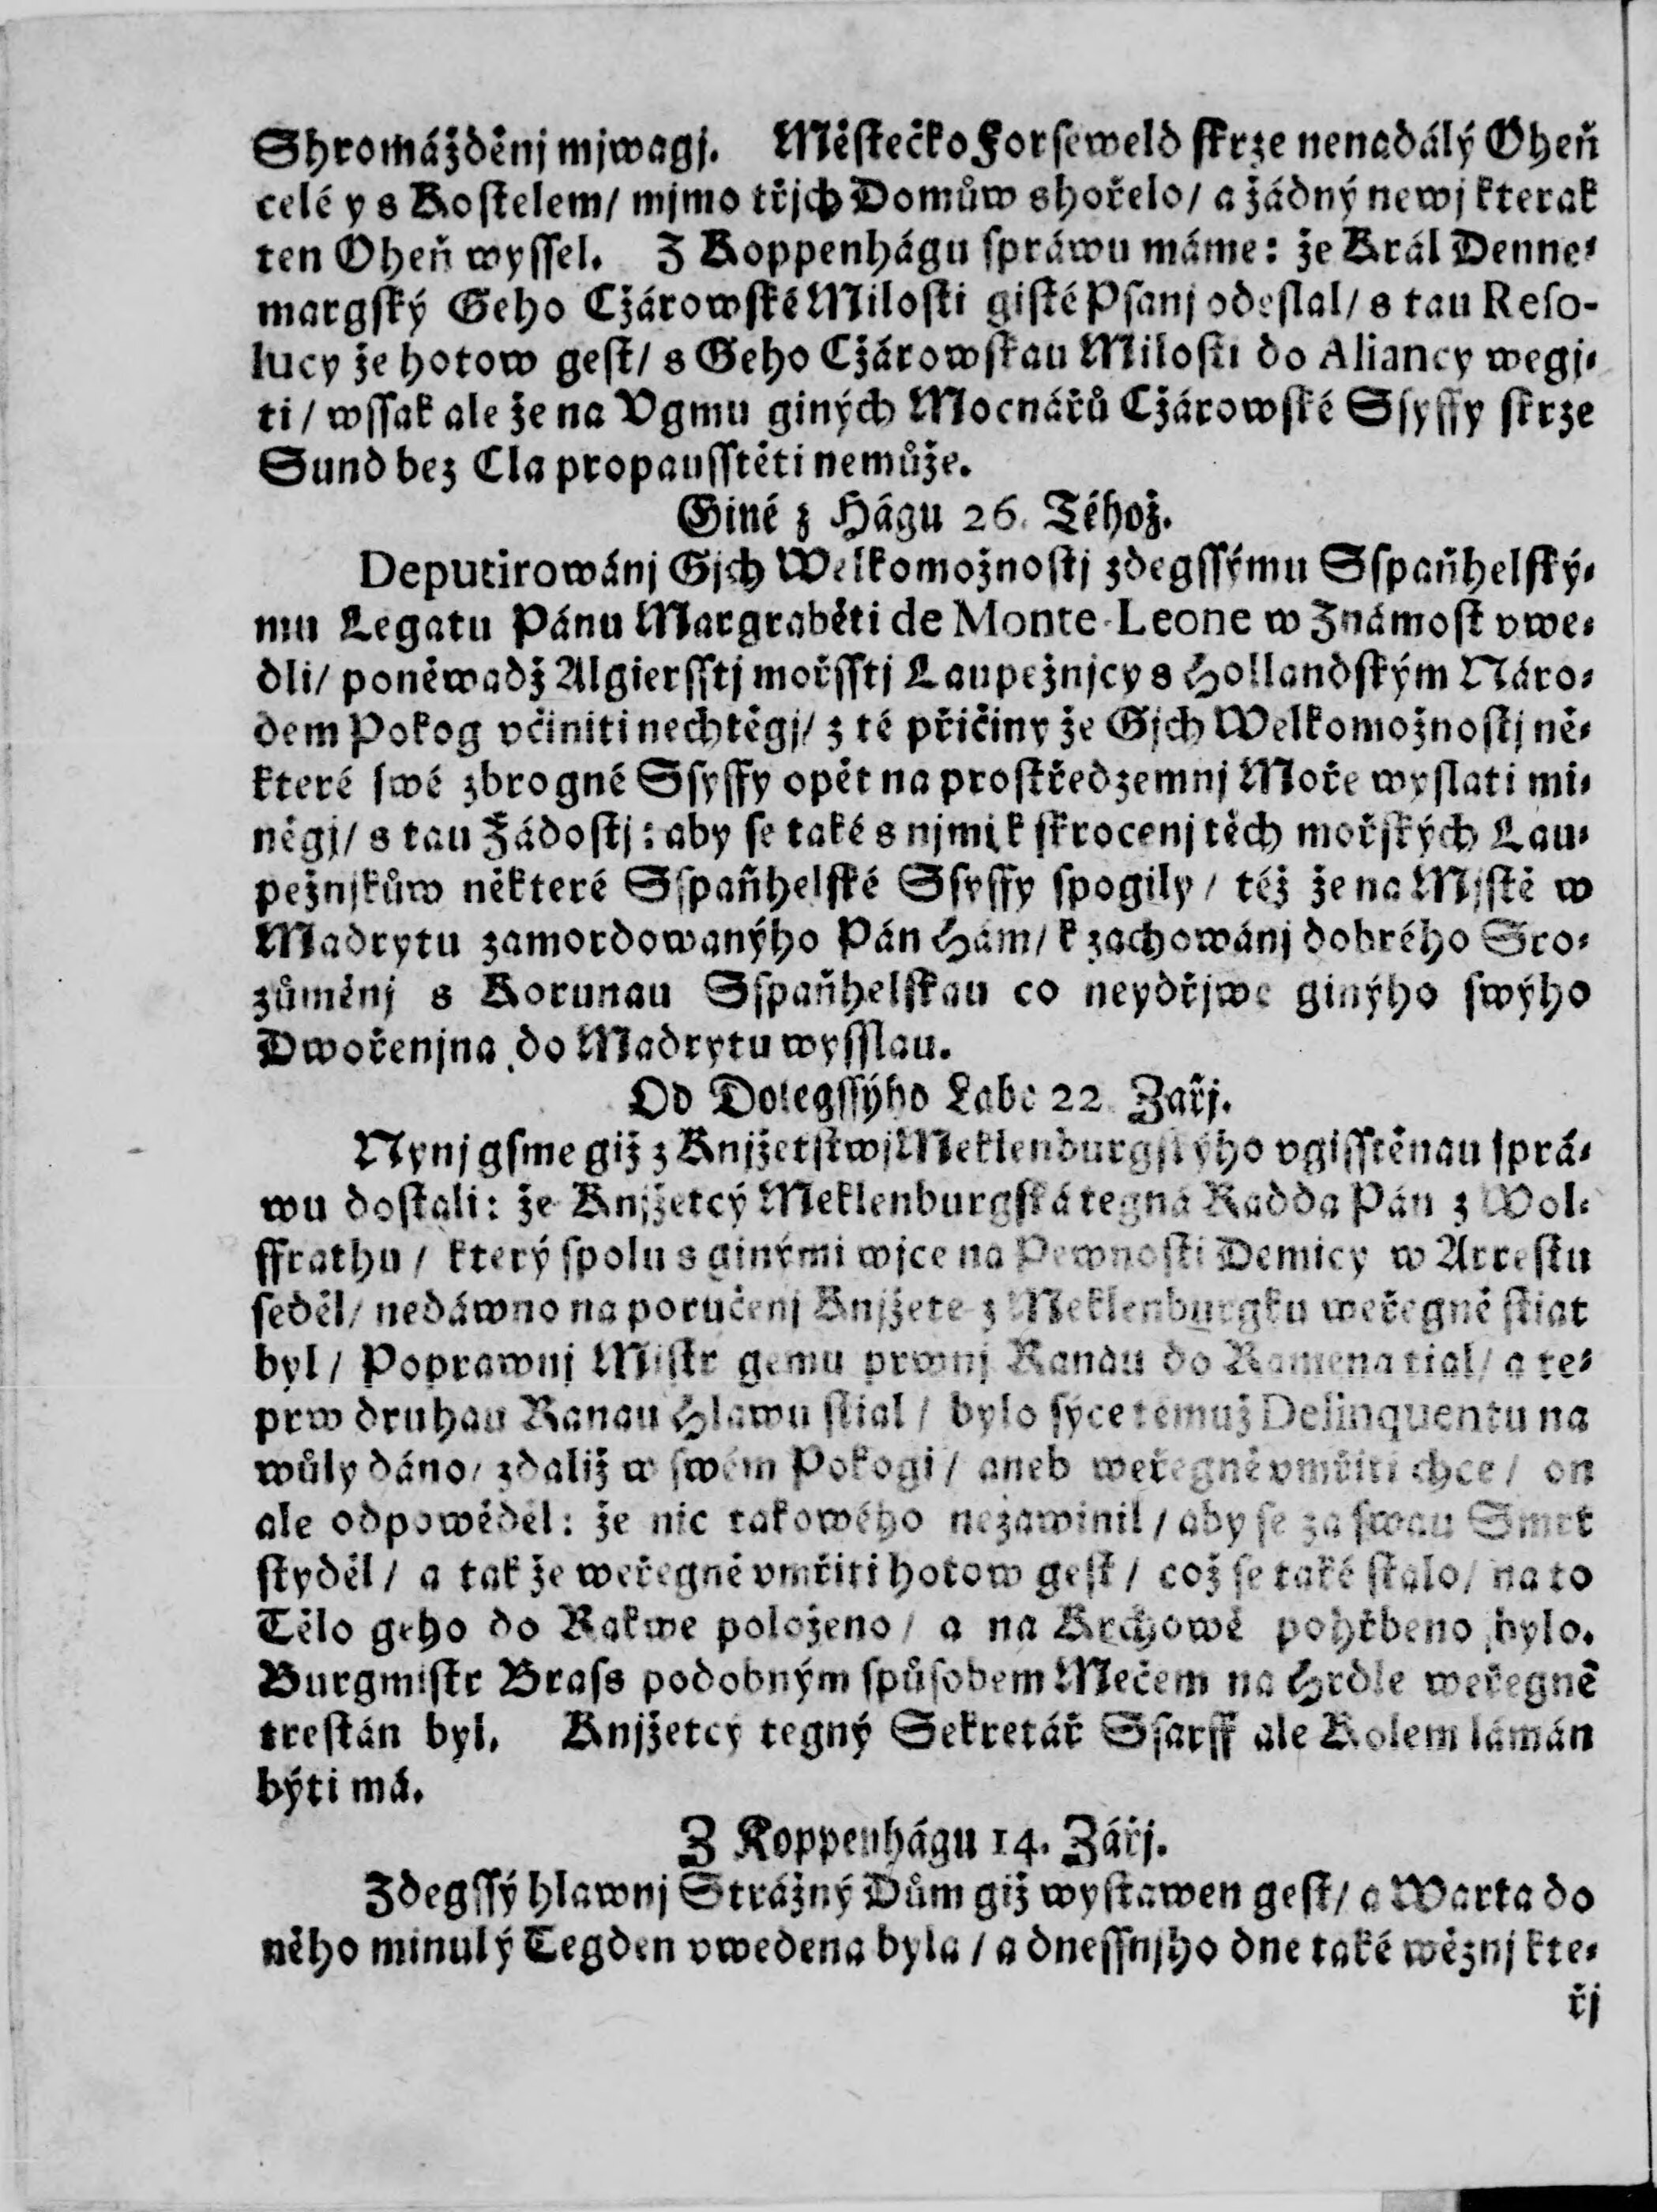 Shromážděnj mjwagj. Městečko Forseweld ſkrze nenadálý Oheň
celé y s Koſtelem/ mjmo třjch Domůw shořelo/ a žádný newj kterak
ten Oheň wyſſel. Z Koppenhágu ſpráwu máme: že Král Denne-
margſký Geho Cžárowſké Miloſti giſté Pſanj odeſlal/ s tau Reſo-
lucy že hotow geſt/ s Geho Cžárowſkau Miloſti do Aliancy wegj-
ti / wſſak ale že na Vgmu giných Mocnářů Cžárowſké Sſyffy ſkrze
Sund bez Cla propauſſtěti nemůže.
Giné z Hágu 26. Téhož.
Deputirowánj Gjch Welkomožnoſtj zdegſſýmu Sſpaňhelſký-
mu Legatu Pánu Margraběti de Monte-Leone w Známoſt vwe-
dli/ poněwadž Algierſſtj mořſſtj Laupežnjcy s Hollandſkým Náro-
dem Pokog včiniti nechtěgj/ z té přičiny že Gjch Welkomožnoſtj ně-
které ſwé zbrogné Sſyffy opět na proſtředzemnj Moře wyſlati mi-
něgj/ s tau Žádoſtj: aby ſe také s njmi k ſkrocenj těch mořſkých Lau-
pežnjkůw některé Sſpaňhelſké Sſyffy ſpogily / též že na Mjſtě w
Madrytu zamordowanýho Pán Hám/ k zachowánj dobrého Sro-
zůměnj s Korunau Sſpaňhelſkau co neydřjwe ginýho ſwýho
Dwořenjna do Madrytu wyſſlau.
Od Dolegſſýho Labe 22. Zařj.
Nynj gſme giž z Knjžetſtwj Meklenburgſkýho vgiſſtěnau ſprá-
wu doſtali: že Knjžetcý Meklenburgſká tegná Radda Pán z Wol-
ffrathu / který ſpolu s ginými wjce na Pewnoſti Demicy w Arreſtu
ſeděl/ nedáwno na poručenj Knjžete z Meklenburgku weřegně ſtiat
byl / Poprawnj Miſtr gemu prwnj Ranau do Ramena tial/ a te-
prw druhau Ranau Hlawu ſtial / bylo ſýce témuž Delinquentu na
wůly dáno/ zdaliž w ſwém Pokogi / aneb weřegně vmřiti chce / on
ale odpowěděl: že nic takowého nezawinil / aby ſe za ſwau Smrt
ſtyděl / a tak že weřegně vmřiti hotow geſt / což ſe také ſtalo/ na to
Tělo geho do Rakwe položeno / a na Krchowě pohřbeno bylo.
Burgmiſtr Braſs podobným ſpůſobem Mečem na Hrdle weřegně
treſtán byl. Knjžetcý tegný Sekretář Sſarff ale Kolem lámán
býti má.
Z Koppenhágu 14. Zářj.
Zdegſſý hlawnj Strážný Dům giž wyſtawen geſt/ a Warta do
něho minulý Tegden vwedena byla / a dneſſnjho dne také wěznj kte-
řj